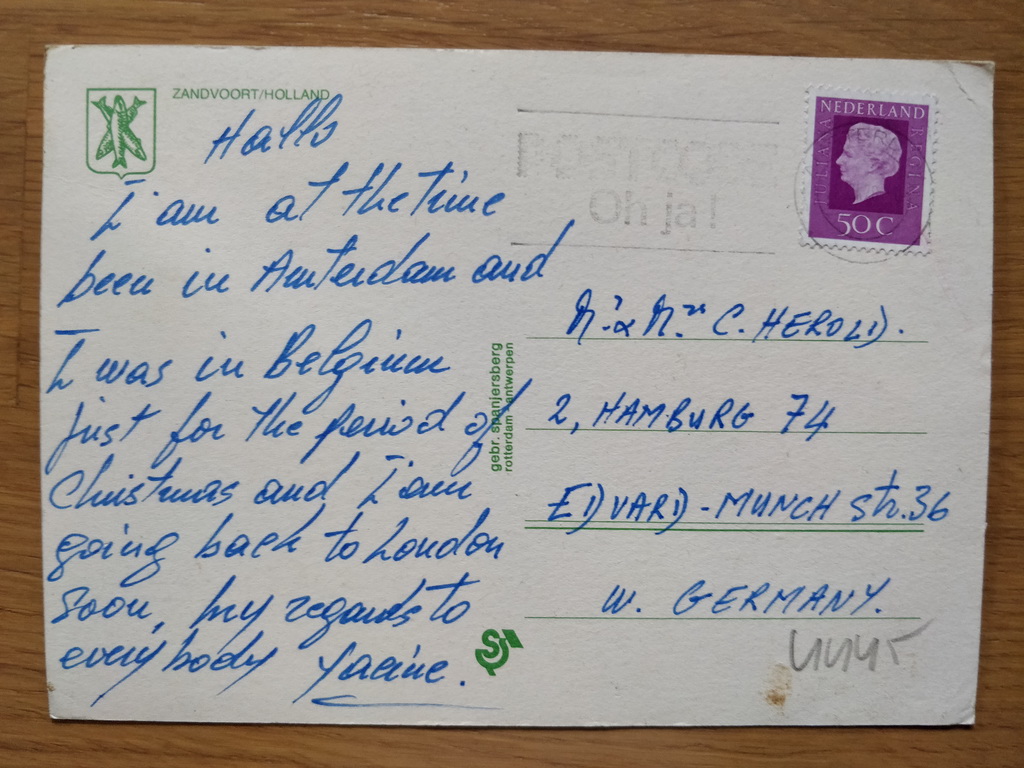 ZANDVOORT/HOLLAND
Hallo
I am at the time
been in Amsterdam and
I was in Belgium
just for the period of
Christmas and I am
going back to London
soon, my regards to
every body Yacine.
gebr. spanjersberg
rotterdam - antwerpen
POSTCODE
Oh ja!
NEDERLAND
JULIANA REGINA
50 C
Mr. & Mrs C. HEROLD.
2, HAMBURG 74
EDVARD-MUNCH Str. 36
W. GERMANY.